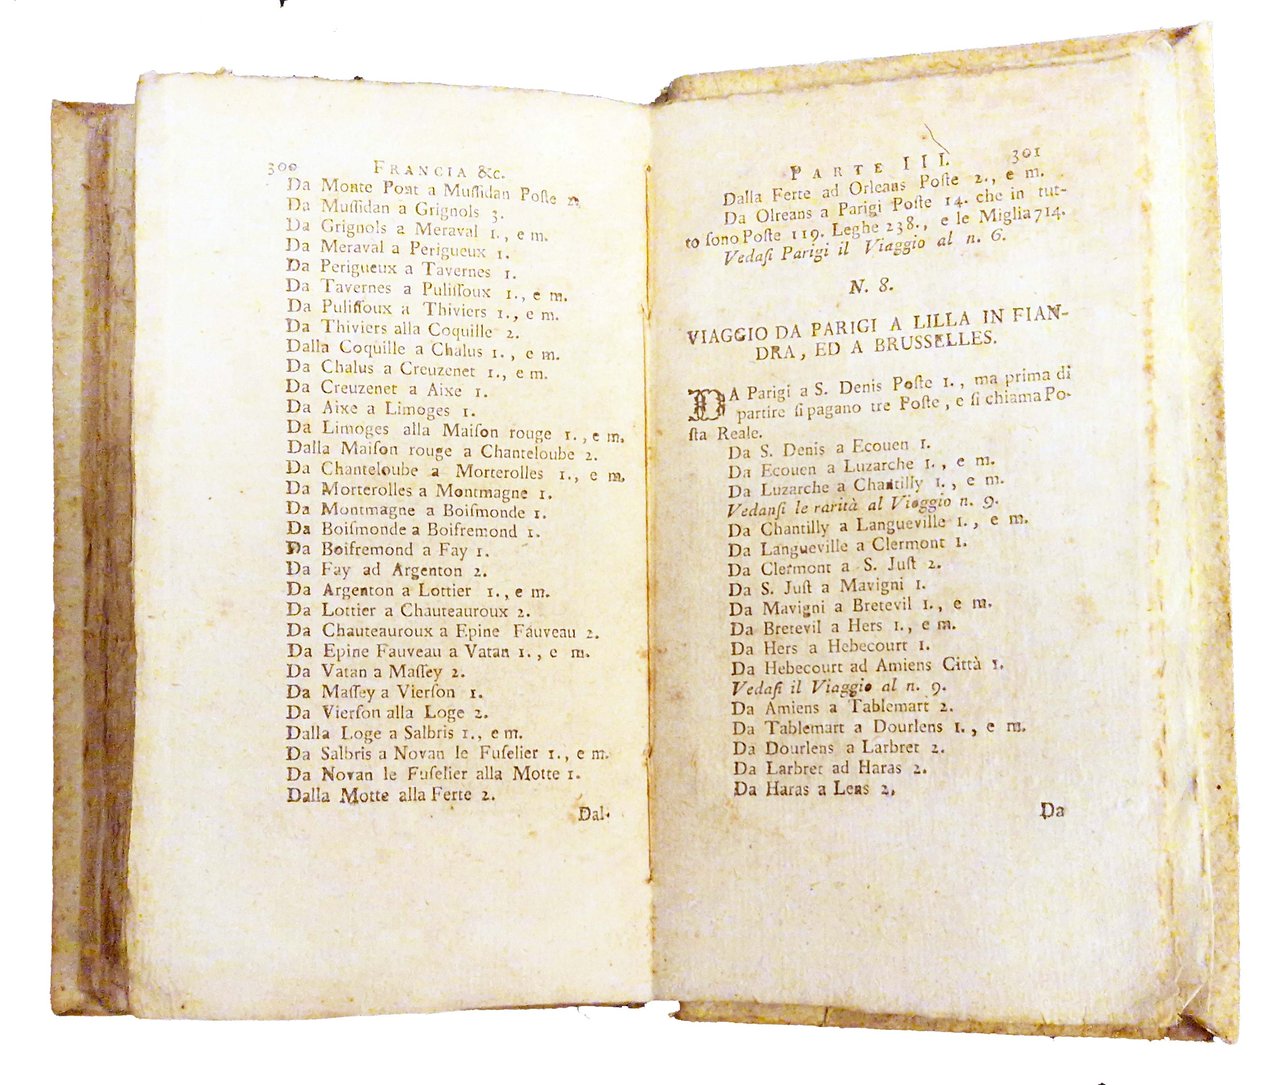 300 FRANCIA &c.
Da Monte Pont a Muſſidan Poſte 2.
Da Muſſidan a Grignols 3.
Da Grignols a Meraval 1., e m.
Da Meraval a Perigueux 1.
Da Perigueux a Tavernes 1.
Da Tavernes a Puliſſoux 1., e m.
Da Puliſſoux a Thiviers 1., e m.
Da Thiviers alla Coquille 2.
Dalla Coquille a Chalus 1., e m.
Da Chalus a Creuzenet 1., e m.
Da Creuzenet a Aixe 1.
Da Aixe a Limoges 1.
Da Limoges alla Maiſon rouge 1., e m.
Dalla Maiſon rouge a Chanteloube 2.
Da Chanteloube a Morterolles 1., e m.
Da Morterolles a Montmagne 1.
Da Montmagne a Boiſmonde 1.
Da Boiſmonde a Boifremond 1.
Da Boifremond a Fay 1.
Da Fay ad Argenton 2.
Da Argenton a Lottier 1., e m.
Da Lottier a Chauteauroux 2.
Da Chauteauroux a Epine Fauveau 2.
Da Epine Fauveau a Vatan 1., e m.
Da Vatan a Maſſey 2.
Da Maſſey a Vierſon 1.
Da Vierſon alla Loge 2.
Dalla Loge a Salbris 1., e m.
Da Salbris a Novan le Fuſelier 1., e m.
Da Novan le Fuſelier alla Motte 1.
Dalla Motte alla Ferte 2.
Dal-
PARTE III. 301
Dalla Ferte ad Orleans Poſte 2., e m.
Da Olreans a Parigi Poſte 14. che in tut-
to ſono Poſte 119. Leghe 238., e le Miglia 714.
Vedaſi Parigi il Viaggio al n. 6.
N. 8.
VIAGGIO DA PARIGI A LILLA IN FIAN-
DRA, ED A BRUSSELLES.
DA Parigi a S. Denis Poſte 1., ma prima di
partire ſi pagano tre Poſte, e ſi chiama Po-
ſta Reale.
Da S. Denis a Ecouen 1.
Da Ecouen a Luzarche 1., e m.
Da Luzarche a Chantilly 1., e m.
Vedanſi le rarità al Viaggio n. 9.
Da Chantilly a Langueville 1., e m.
Da Langueville a Clermont 1.
Da Clermont a S. Juſt 2.
Da S. Juſt a Mavigni 1.
Da Mavigni a Bretevil 1., e m.
Da Bretevil a Hers 1., e m.
Da Hers a Hebecourt 1.
Da Hebecourt ad Amiens Città 1.
Vedaſi il Viaggio al n. 9.
Da Amiens a Tablemart 2.
Da Tablemart a Dourlens 1., e m.
Da Dourlens a Larbret 2.
Da Larbret ad Haras 2.
Da Haras a Lens 2.
Da